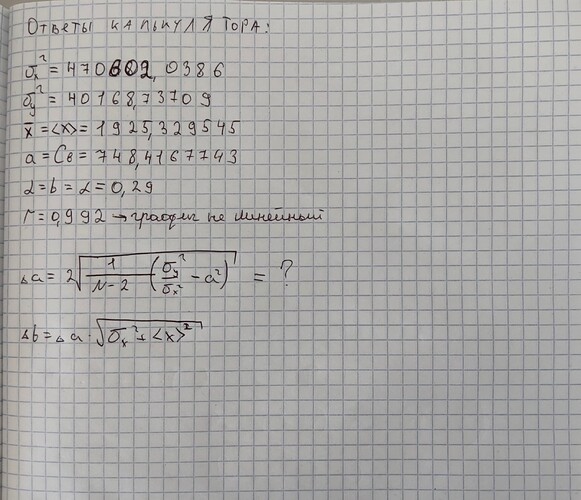 Ответы калькулятора:
σx² = 470602,0386
σy² = 40168,73709
x̄ = <x> = 1925,329545
a = Cв = 748,4167743
α = b = α = 0,29
r = 0,992 → график не линейный
Δa = 2√(1/(N-2) (σy²/σx² - a²)) = ?
Δb = Δa · √(σx² + <x>²)